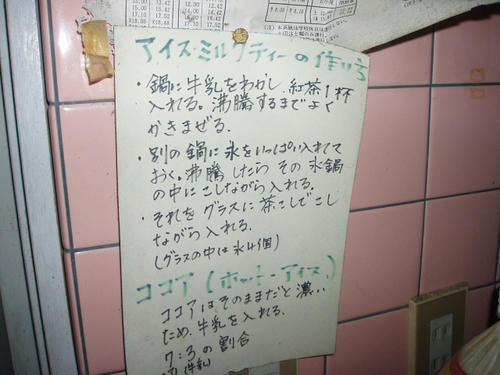 アイス・ミルクティーの作り方
・鍋に牛乳をわかし、紅茶1杯
入れる。沸騰するまでよく
かきまぜる.
・別の鍋に氷をいっぱい入れて
おく。沸騰したら その氷鍋
の中にこしながら入れる.
・それをグラスに茶こしでこし
ながら入れる.
(グラスの中は氷4個)
ココア(ホット・アイス)
ココアはそのままだと濃い
ため、牛乳を入れる.
7:3の割合